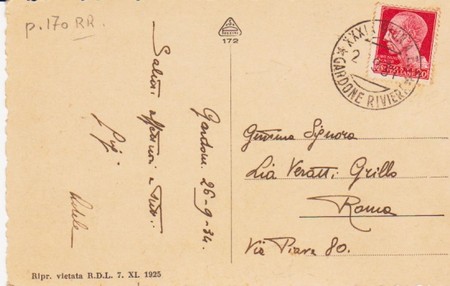 p. 170 RR.
172
GARDONE RIVIERA
Gardone 26-9-34.
Saluti affettuosi a tutti.
Adele
Gemma Signora
Lia Veratti Grillo
Roma
Via Piave 80.
Ripr. vietata R.D.L. 7. XI. 1925